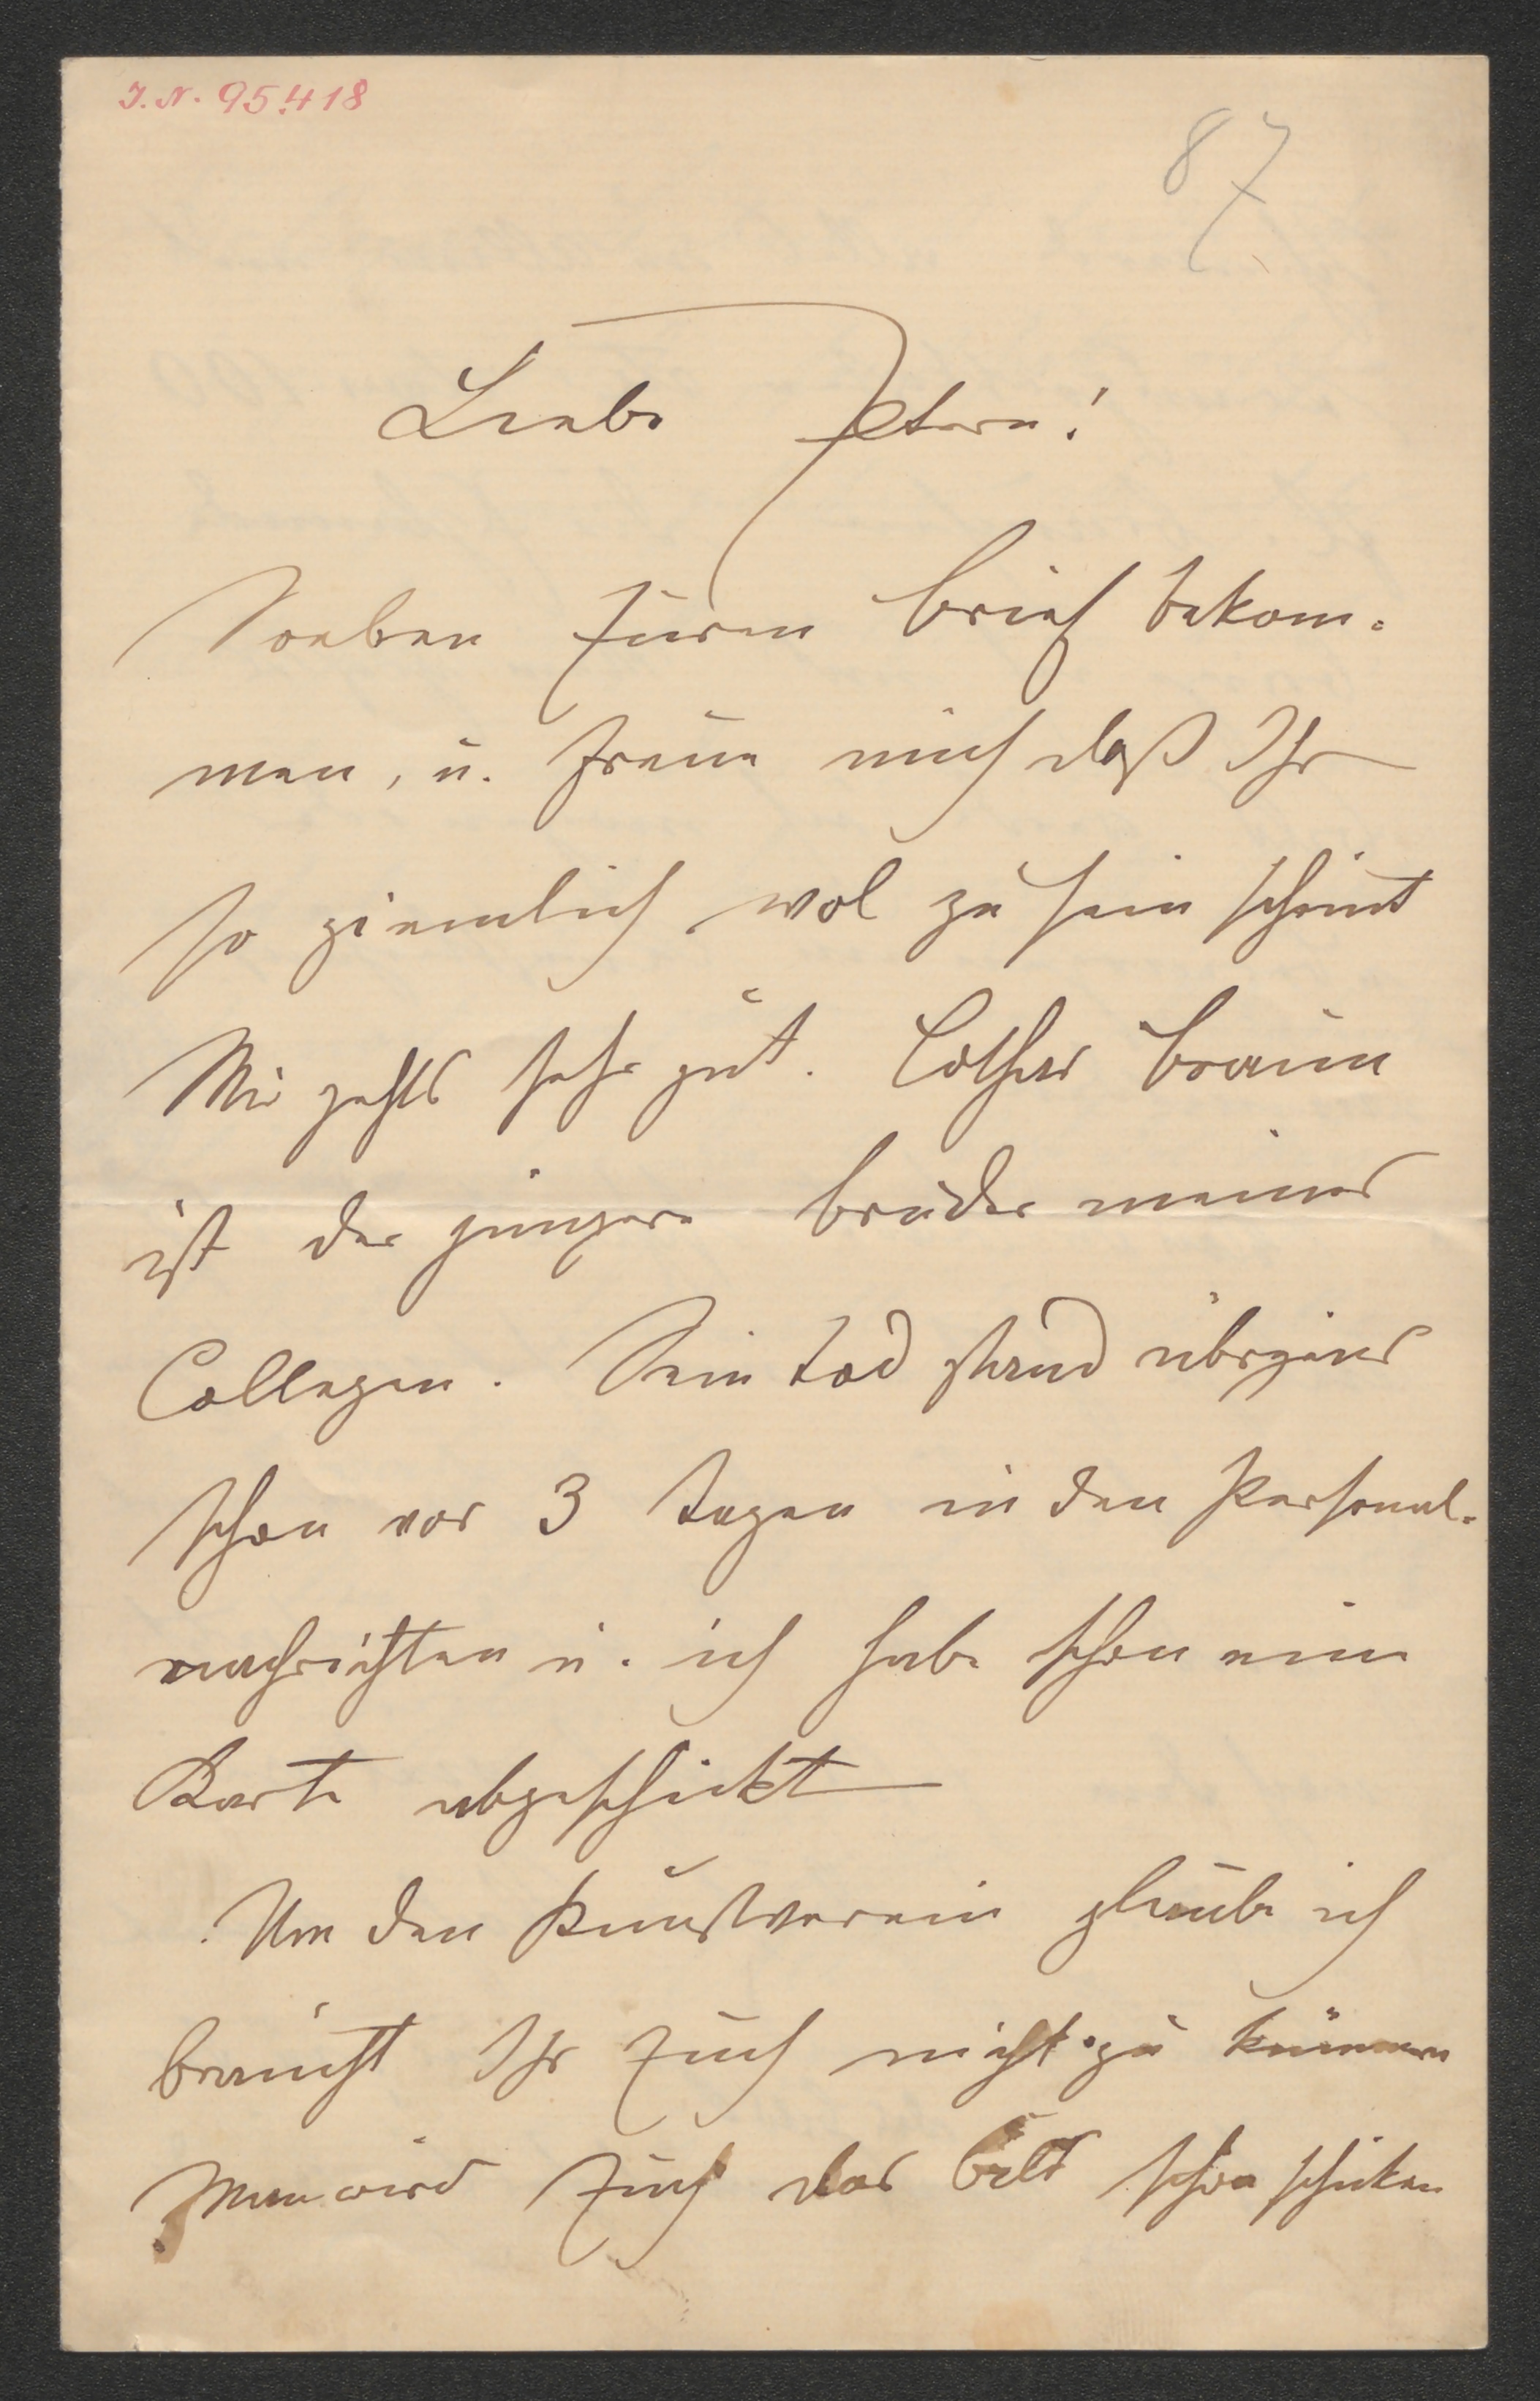 J. N. 95.418
87
Liebe Eltern!
Soeben Euren Brief bekom-
men, u. freue mich daß Ihr
so ziemlich wol zu sein scheint
Mir gehts sehr gut. Lothar Braun
ist der jüngere Bruder meines
Collegen. Sein Tod stand übrigens
schon vor 3 Tagen in den Personal-
nachrichten u. ich habe schon eine
Karte abgeschickt
Um den Kunstverein glaube ich
braucht Ihr Euch nicht zu kümmern
Man wird Euch das Bild schon schicken